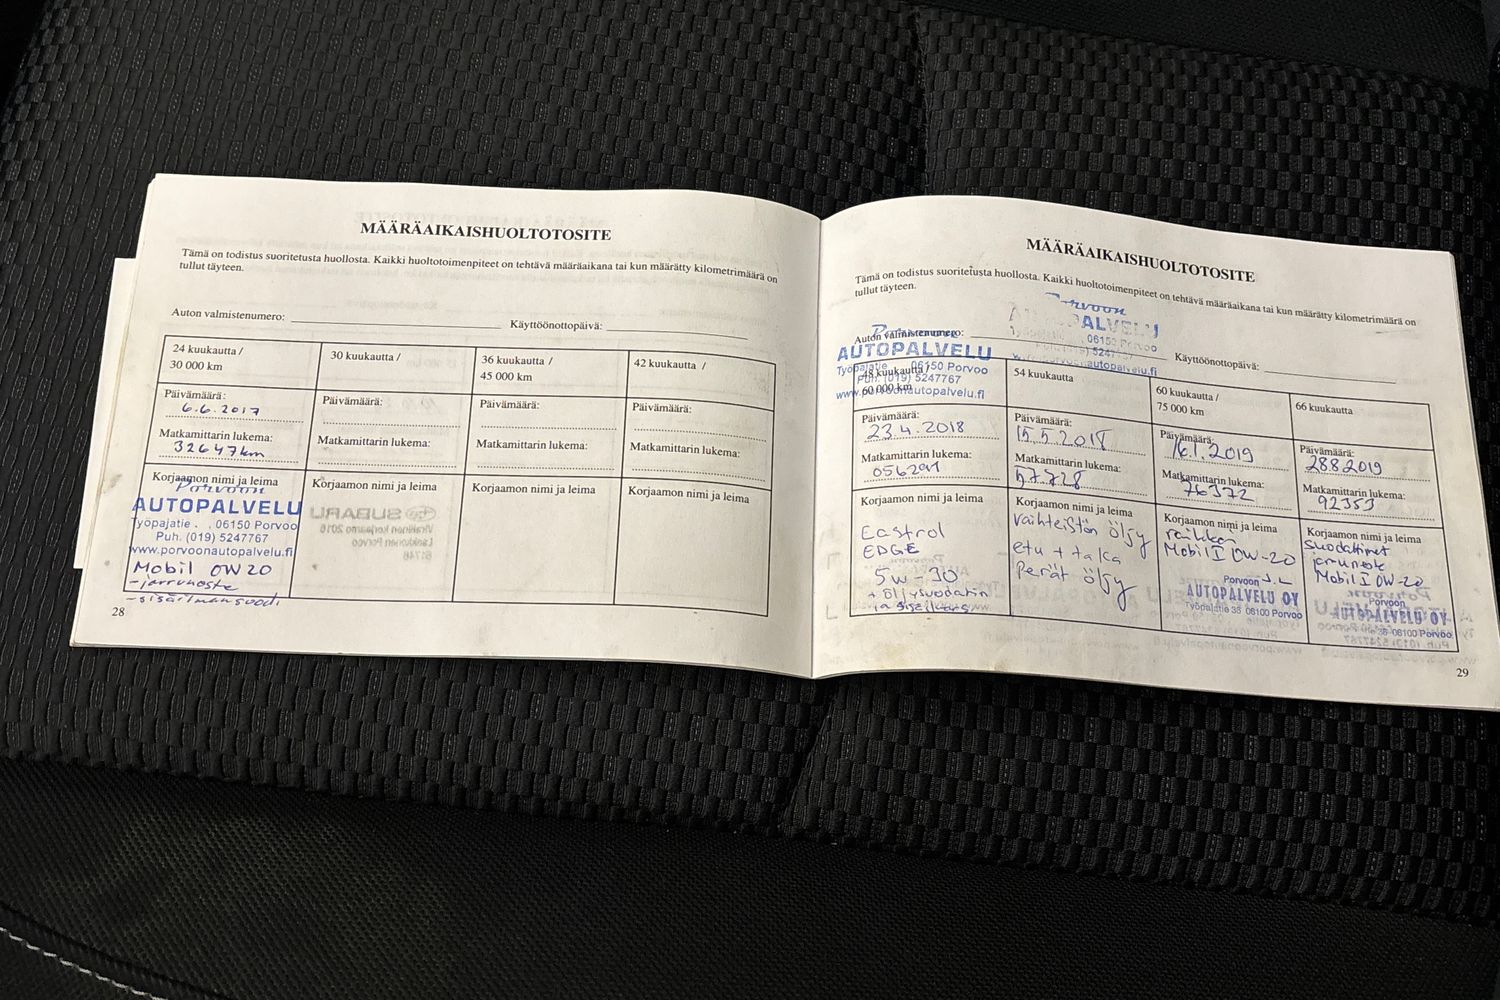 MÄÄRÄAIKAISHUOLTOTOSITE
Tämä on todistus suoritetusta huollosta. Kaikki huoltotoimenpiteet on tehtävä määräaikana tai kun määrätty kilometrimäärä on
tullut täyteen.
Auton valmistenumero: Käyttöönottopäivä:
24 kuukautta /
30 000 km
30 kuukautta /
36 kuukautta /
45 000 km
42 kuukautta /
Päivämäärä:
6.6.2017
Päivämäärä:
Päivämäärä:
Päivämäärä:
Matkamittarin lukema:
32647km
Matkamittarin lukema:
Matkamittarin lukema:
Matkamittarin lukema:
Korjaamon nimi ja leima
Porvoon
AUTOPALVELU
Työpajatie 06150 Porvoo
Puh. (019) 5247767
www.porvoonautopalvelu.fi
Mobil 0W20
-jarruneste
-sisäilmansuod.
Korjaamon nimi ja leima
Korjaamon nimi ja leima
Korjaamon nimi ja leima
28
MÄÄRÄAIKAISHUOLTOTOSITE
Tämä on todistus suoritetusta huollosta. Kaikki huoltotoimenpiteet on tehtävä määräaikana tai kun määrätty kilometrimäärä on
tullut täyteen.
Auton valmistenumero: Käyttöönottopäivä:
Porvoon
AUTOPALVELU
Työpajatie 06150 Porvoo
Puh. (019) 5247767
www.porvoonautopalvelu.fi
Porvoon
06150 Porvoo
48 kuukautta /
60 000 km
54 kuukautta
60 kuukautta /
75 000 km
66 kuukautta
Päivämäärä:
23.4.2018
Päivämäärä:
15.5.2018
Päivämäärä:
16.1.2019
Päivämäärä:
28.8.2019
Matkamittarin lukema:
056291
Matkamittarin lukema:
57.728
Matkamittarin lukema:
76372
Matkamittarin lukema:
92353
Korjaamon nimi ja leima
Castrol
EDGE
5W-30
+ öljysuodatin
Korjaamon nimi ja leima
Vaihteistön öljy
etu + taka
perät öljy
Korjaamon nimi ja leima
Mobil I 0W-20
Porvoon
AUTOPALVELU OY
Työpajatie 35 06100 Porvoo
Korjaamon nimi ja leima
suodattimet
jarruneste
Mobil I 0W-20
Porvoon
AUTOPALVELU OY
06100 Porvoo
29